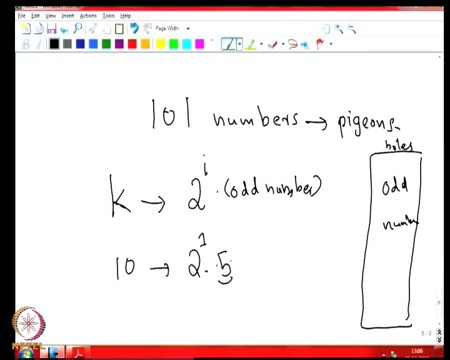 File Edit View Insert Actions Tools Help
Page Width
101 numbers → pigeons
holes
K → 2^i · (odd number)
odd
10 → 2^1 · 5
13:08